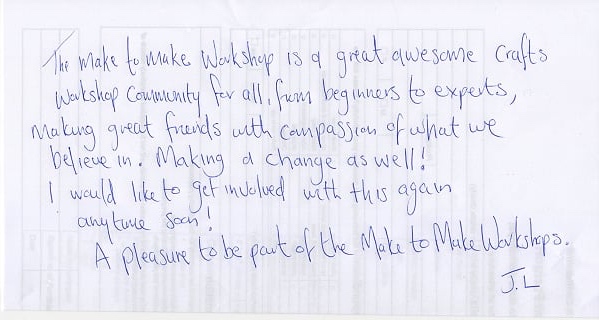 The Make to Make Workshop is a great awesome crafts
Workshop Community for all, from beginners to experts,
Making great friends with compassion of what we
believe in. Making a change as well!
I would like to get involved with this again
anytime soon!
A pleasure to be part of the Make to Make Workshops.
J.L